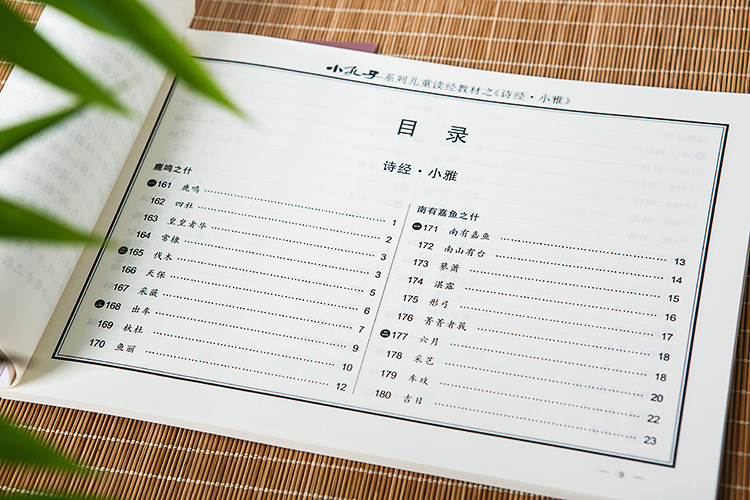 小孔子 系列儿童读经教材之《诗经·小雅》
目 录
诗经·小雅
鹿鸣之什
一 161 鹿鸣 1
162 四牡 2
163 皇皇者华 3
164 常棣 3
二 165 伐木 5
166 天保 6
167 采薇 7
三 168 出车 9
169 杕杜 10
170 鱼丽 12
南有嘉鱼之什
一 171 南有嘉鱼 13
172 南山有台 14
173 蓼萧 15
174 湛露 16
175 彤弓 17
176 菁菁者莪 18
二 177 六月 18
178 采芑 20
179 车攻 22
180 吉日 23
— 9 —